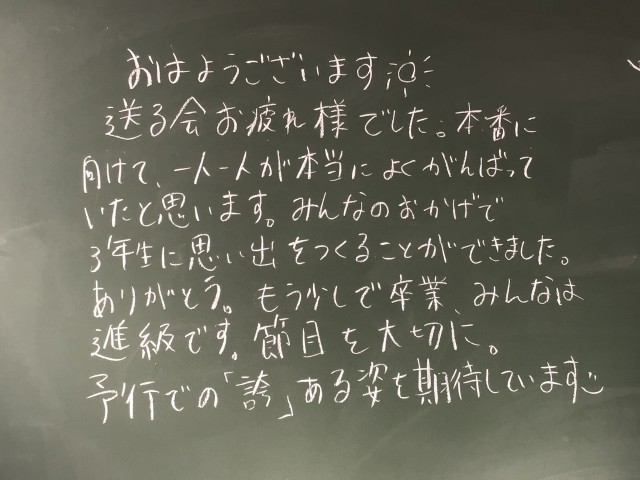 おはようございます
送る会お疲れ様でした。本番に
向けて、一人一人が本当によくがんばって
いたと思います。みんなのおかげで
3年生に思い出をつくることができました。
ありがとう。もう少しで卒業、みんなは
進級です。節目を大切に。
予行での「誇」ある姿を期待しています